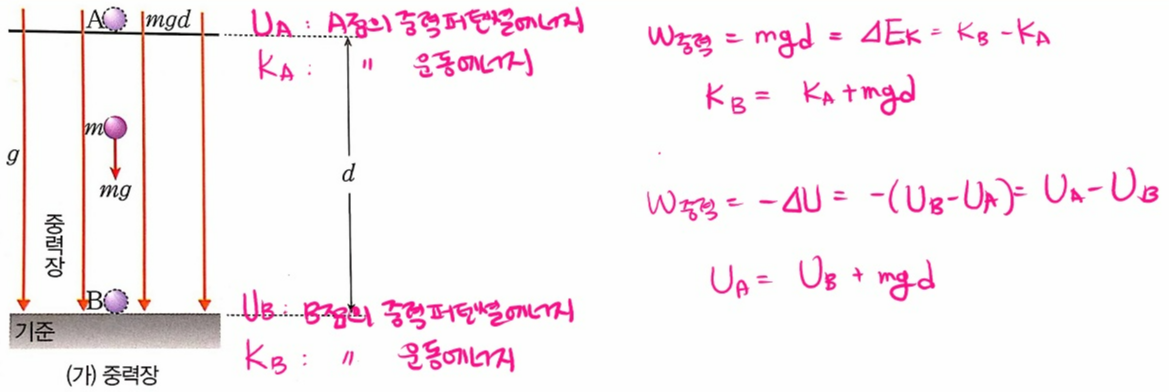 A mgd
U_A : A점의 중력퍼텐셜에너지
K_A : 〃 운동에너지
m
g
mg
d
중력장
B
U_B : B점의 중력퍼텐셜에너지
기준
K_B : 〃 운동에너지
(가) 중력장
W중력 = mgd = ΔE_K = K_B - K_A
K_B = K_A + mgd
W중력 = -ΔU = -(U_B - U_A) = U_A - U_B
U_A = U_B + mgd